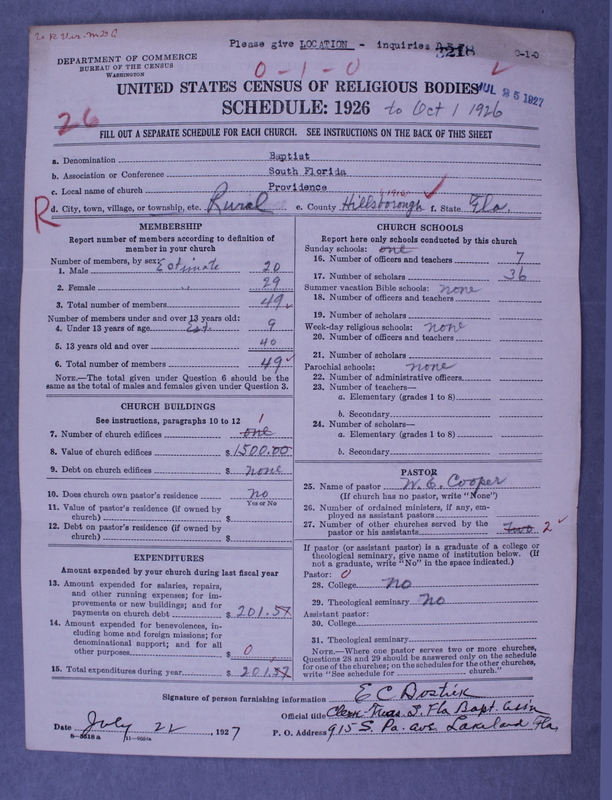 Please give LOCATION - inquiries
3218
0-1-0
DEPARTMENT OF COMMERCE
BUREAU OF THE CENSUS
WASHINGTON
0-1-0
UNITED STATES CENSUS OF RELIGIOUS BODIES
JUL 25 1927
SCHEDULE: 1926 to Oct 1 1926
26
FILL OUT A SEPARATE SCHEDULE FOR EACH CHURCH. SEE INSTRUCTIONS ON THE BACK OF THIS SHEET
a. Denomination Baptist
b. Association or Conference South Florida
c. Local name of church Providence
R
d. City, town, village, or township, etc. Rural e. County Hillsborough f. State Fla.
MEMBERSHIP
Report number of members according to definition of
member in your church
Number of members, by sex:
1. Male Estimate 20
2. Female " 29
3. Total number of members 49
Number of members under and over 13 years old:
4. Under 13 years of age Est. 9
5. 13 years old and over 40
6. Total number of members 49
NOTE.—The total given under Question 6 should be the
same as the total of males and females given under Question 3.
CHURCH BUILDINGS
See instructions, paragraphs 10 to 12
7. Number of church edifices one 1
8. Value of church edifices $ 1500.00
9. Debt on church edifices $ none
10. Does church own pastor's residence no
Yes or No
11. Value of pastor's residence (if owned by
church) $
12. Debt on pastor's residence (if owned by
church) $
EXPENDITURES
Amount expended by your church during last fiscal year
13. Amount expended for salaries, repairs,
and other running expenses; for im-
provements or new buildings; and for
payments on church debt $ 201.57
14. Amount expended for benevolences, in-
cluding home and foreign missions; for
denominational support; and for all
other purposes $ 0
15. Total expenditures during year $ 201.57
CHURCH SCHOOLS
Report here only schools conducted by this church
Sunday schools: one
16. Number of officers and teachers 7
17. Number of scholars 36
Summer vacation Bible schools: none
18. Number of officers and teachers
19. Number of scholars
Week-day religious schools: none
20. Number of officers and teachers
21. Number of scholars
Parochial schools: none
22. Number of administrative officers
23. Number of teachers—
a. Elementary (grades 1 to 8)
b. Secondary
24. Number of scholars—
a. Elementary (grades 1 to 8)
b. Secondary
PASTOR
25. Name of pastor W. E. Cooper
(If church has no pastor, write "None")
26. Number of ordained ministers, if any, em-
ployed as assistant pastors
27. Number of other churches served by the
pastor or his assistants Two 2
If pastor (or assistant pastor) is a graduate of a college or
theological seminary, give name of institution below. (If
not a graduate, write "No" in the space indicated.)
Pastor: 0
28. College no
29. Theological seminary no
Assistant pastor:
30. College
31. Theological seminary
NOTE.—Where one pastor serves two or more churches,
Questions 28 and 29 should be answered only on the schedule
for one of the churches; on the schedules for the other churches,
write "See schedule for church."
Signature of person furnishing information E C Bostick
Official title Clerk-Treas S. Fla Bapt. Assn
Date July 22, 1927 P. O. Address 915 S. Pa. ave. Lakeland Fla.
8-5518 a 11-8664a